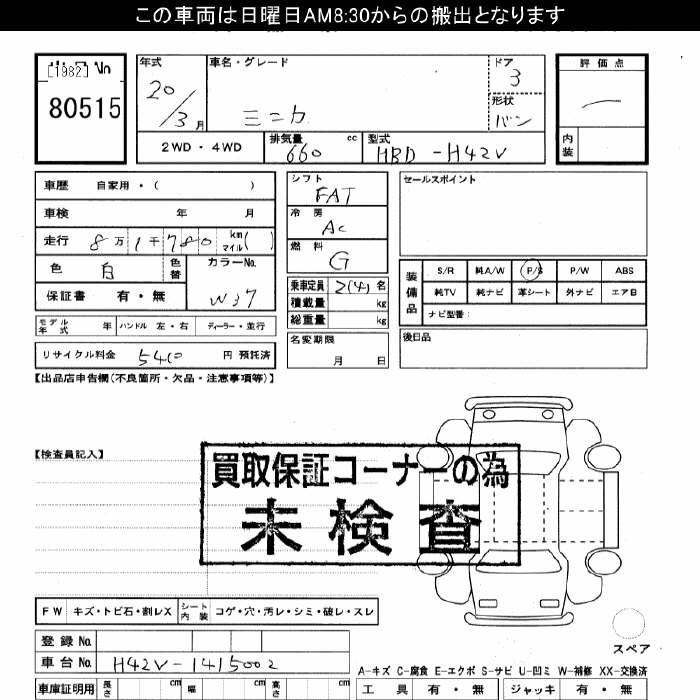 この車両は日曜日AM8:30からの搬出となります
[1982]
80515
年式 20/3月
車名・グレード ミニカ
ドア 3
形状 バン
評価点
内装
2WD・4WD
排気量 660 cc
型式 HBD-H42V
車歴 自家用・( )
車検 年 月
走行 8万1千780 km マイル( )
色 白 色替 カラーNo. W37
保証書 有・無
モデル年式 年 ハンドル 左・右 ディーラー・並行
リサイクル料金 5410 円 預託済
シフト FAT
冷房 AC
燃料 G
乗車定員 2(4)名
積載量 kg
総重量 kg
名変期限 月 日
セールスポイント
装備品
S/R 純A/W P/S P/W ABS
純TV 純ナビ 革シート 外ナビ エアB
ナビ型番:
後日品
【出品店申告欄(不良箇所・欠品・注意事項等)】
【検査員記入】
買取保証コーナーの為
未検査
FW キズ・トビ石・割レX シート内装 コゲ・穴・汚レ・シミ・破レ・スレ
スペア
登録No.
車台No. H42V-1415002
A-キズ C-腐食 E-エクボ S-サビ U-凹ミ W-補修 XX-交換済
車庫証明用 長さ cm 幅 cm 高さ cm
工具 有・無 ジャッキ 有・無